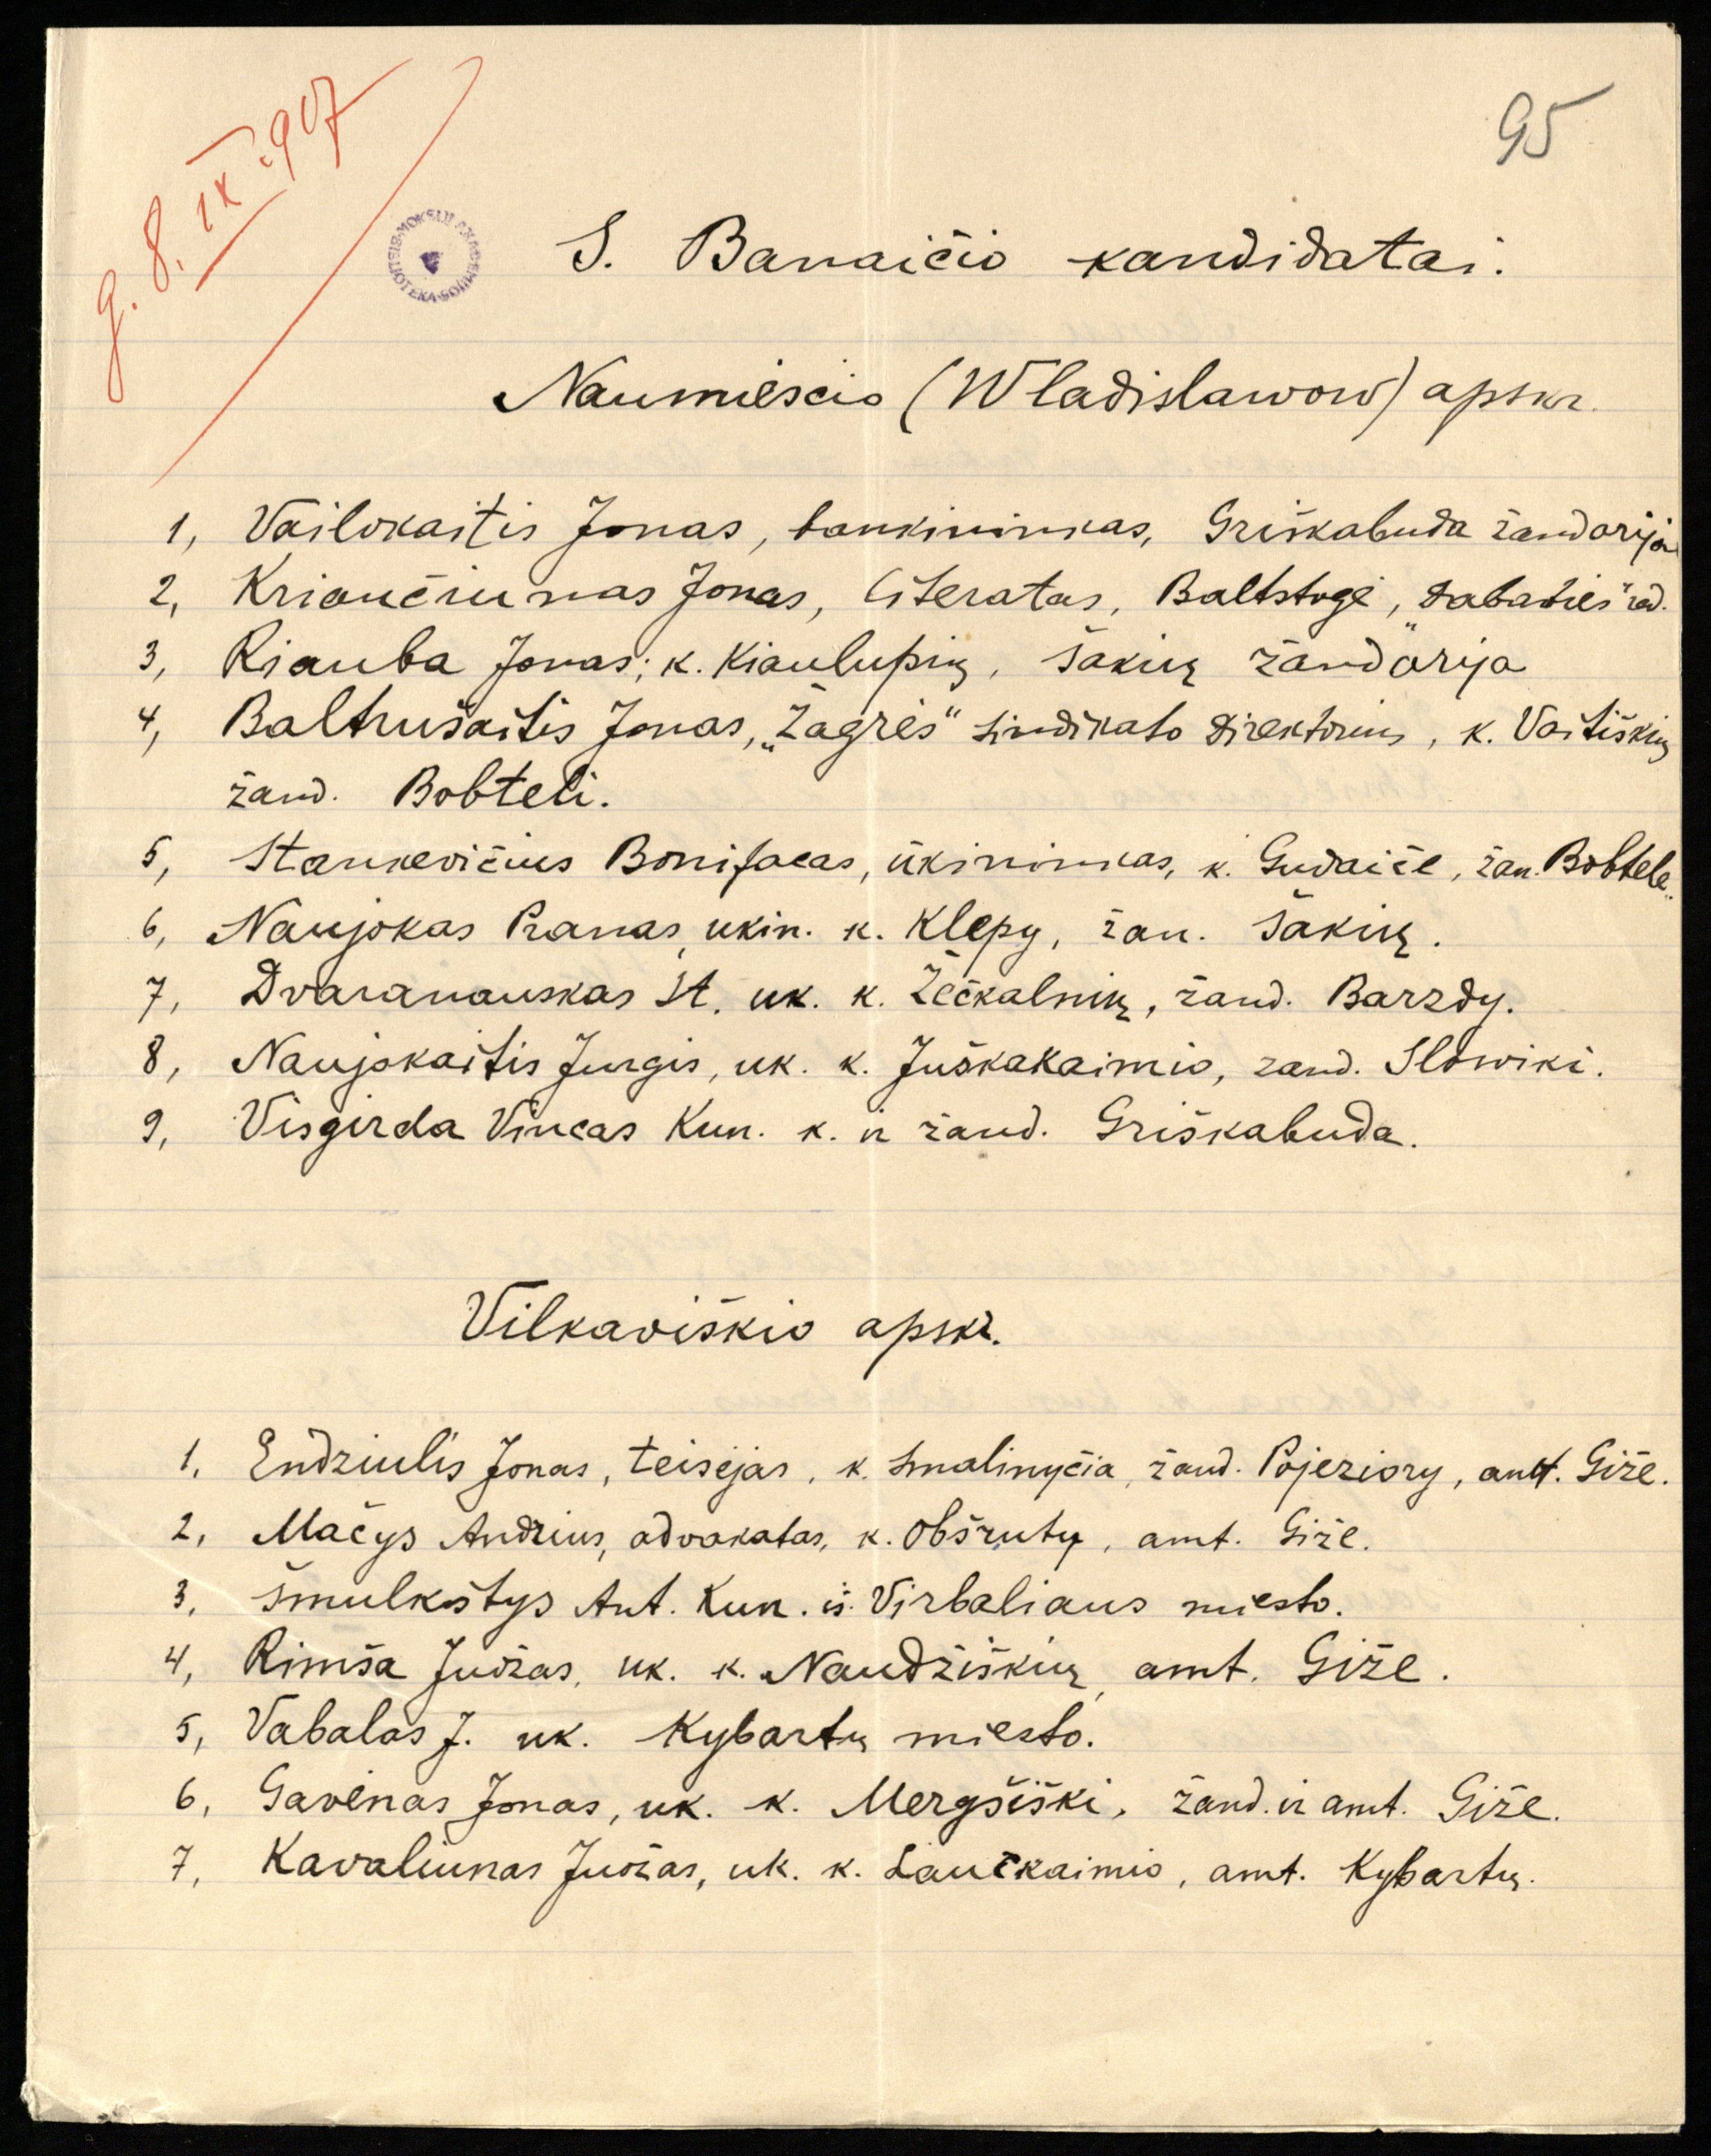 g. 8. IX. 907
95
S. Banaičio kandidatai.
Naumiesčio (Wladislawow) apskr.
1, Vailokaitis Jonas, bankininkas, Griškabuda žandarija
2, Kriaučiunas Jonas, literatas, Baltstogė, „Dabaties" red.
3, Riauba Jonas; k. Kiaulupių, Šakių žandarija
4, Baltrušaitis Jonas, „Žagrės" sindikato direktorius, k. Vaitiškių
žand. Bobteli.
5, Stankevičius Bonifacas, ūkininkas, k. Gudaičė, žan. Bobtele.
6, Naujokas Pranas, ukin. k. Klepų, žan. Šakių.
7, Dvaranauskas St. uk. k. Žečkalnių, žand. Barzdy.
8, Naujokaitis Jurgis, uk. k. Juškakaimio, zand. Slowiki.
9, Visgirda Vincas Kun. k. ir žand. Griškabuda.
Vilkaviškio apskr.
1. Endziulis Jonas, teisėjas, k. Smalinyčia, žand. Pojeziory, amt. Giže.
2, Mačys Andrius, advokatas, k. Obšrutų, amt. Giže.
3, Šmulkštys Ant. Kun. iš Virbaliaus miesto.
4, Rimša Juozas, uk. k. Naudžiškių, amt. Giže.
5, Vabalas J. uk. Kybartų miesto.
6, Gavėnas Jonas, uk. k. Mergšiški, žand. ir amt. Giže.
7, Kavaliunas Juozas, uk. k. Laučkaimio, amt. Kybartų.